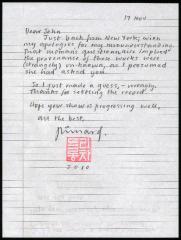 17 Nov
Dear John
Just back from New York, with
my apologies for my misunderstanding.
That momans questionnaire implied
the provenance of those works were
(strangely) unknown, as I presumed
she had asked you.
So I just made a guess, – wrongly.
Thanks for settling the record
Hope your show is progressing well,
All the best,
2010